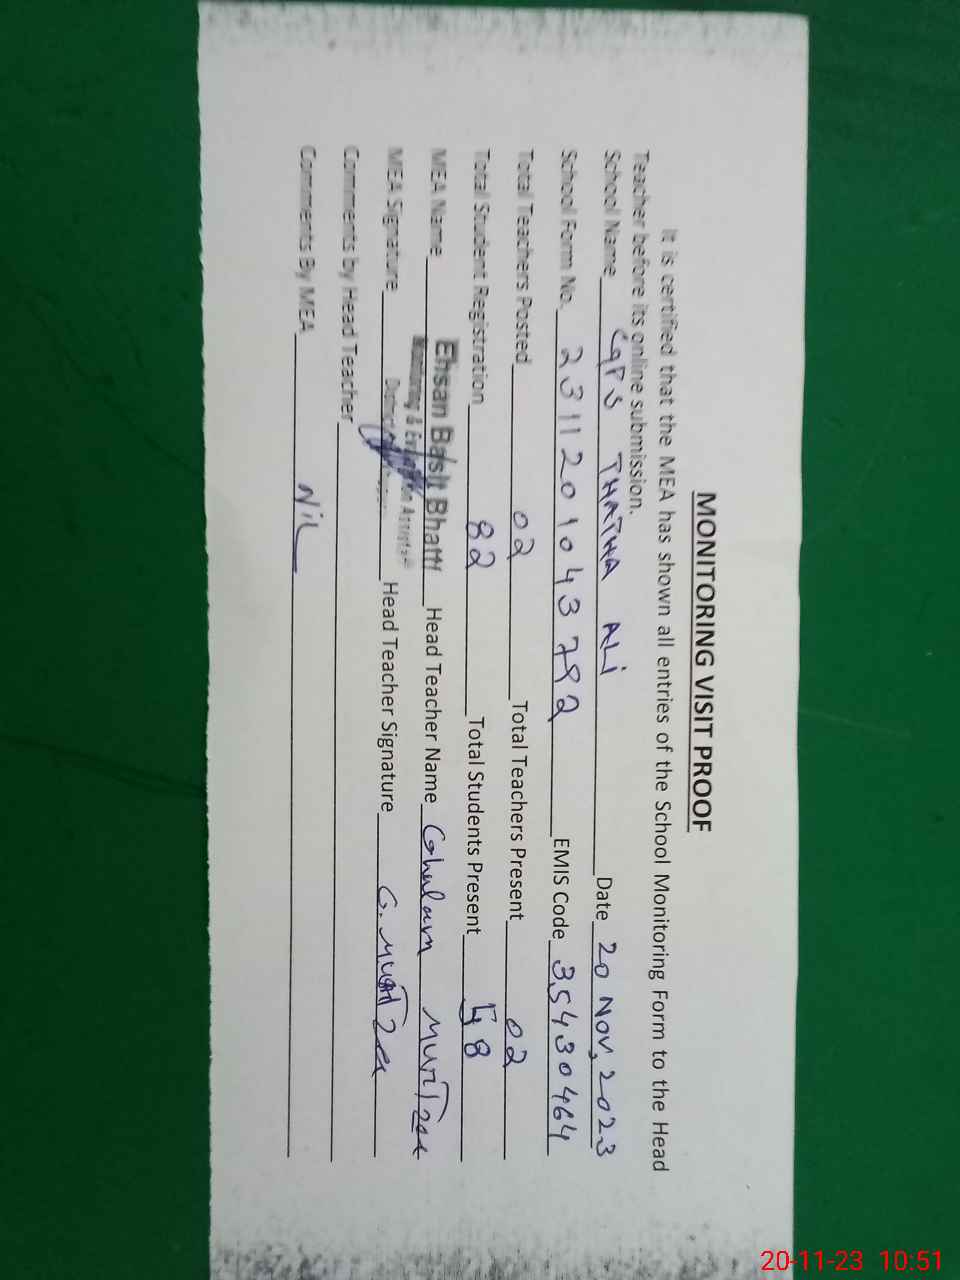 MONITORING VISIT PROOF
It is certified that the MEA has shown all entries of the School Monitoring Form to the Head
Teacher before its online submission.
School Name GPS THATHA ALi Date 20 Nov, 2023
School Form No. 2311201043792 EMIS Code 35430464
Total Teachers Posted 02 Total Teachers Present 02
Total Student Registration 82 Total Students Present 58
MEA Name Ehsan Basit Bhatti Head Teacher Name Ghulam Murtaza
Monitoring & Evaluation Assistant
MEA Signature District Head Teacher Signature G. Murtaza
Comments by Head Teacher
Comments By MEA NiL
20-11-23 10:51